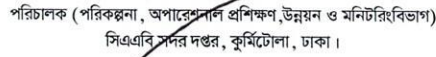 পরিচালক (পরিকল্পনা, অপারেশনাল প্রশিক্ষণ,উন্নয়ন ও মনিটরিংবিভাগ)
সিএএবি সদর দপ্তর, কুর্মিটোলা, ঢাকা।